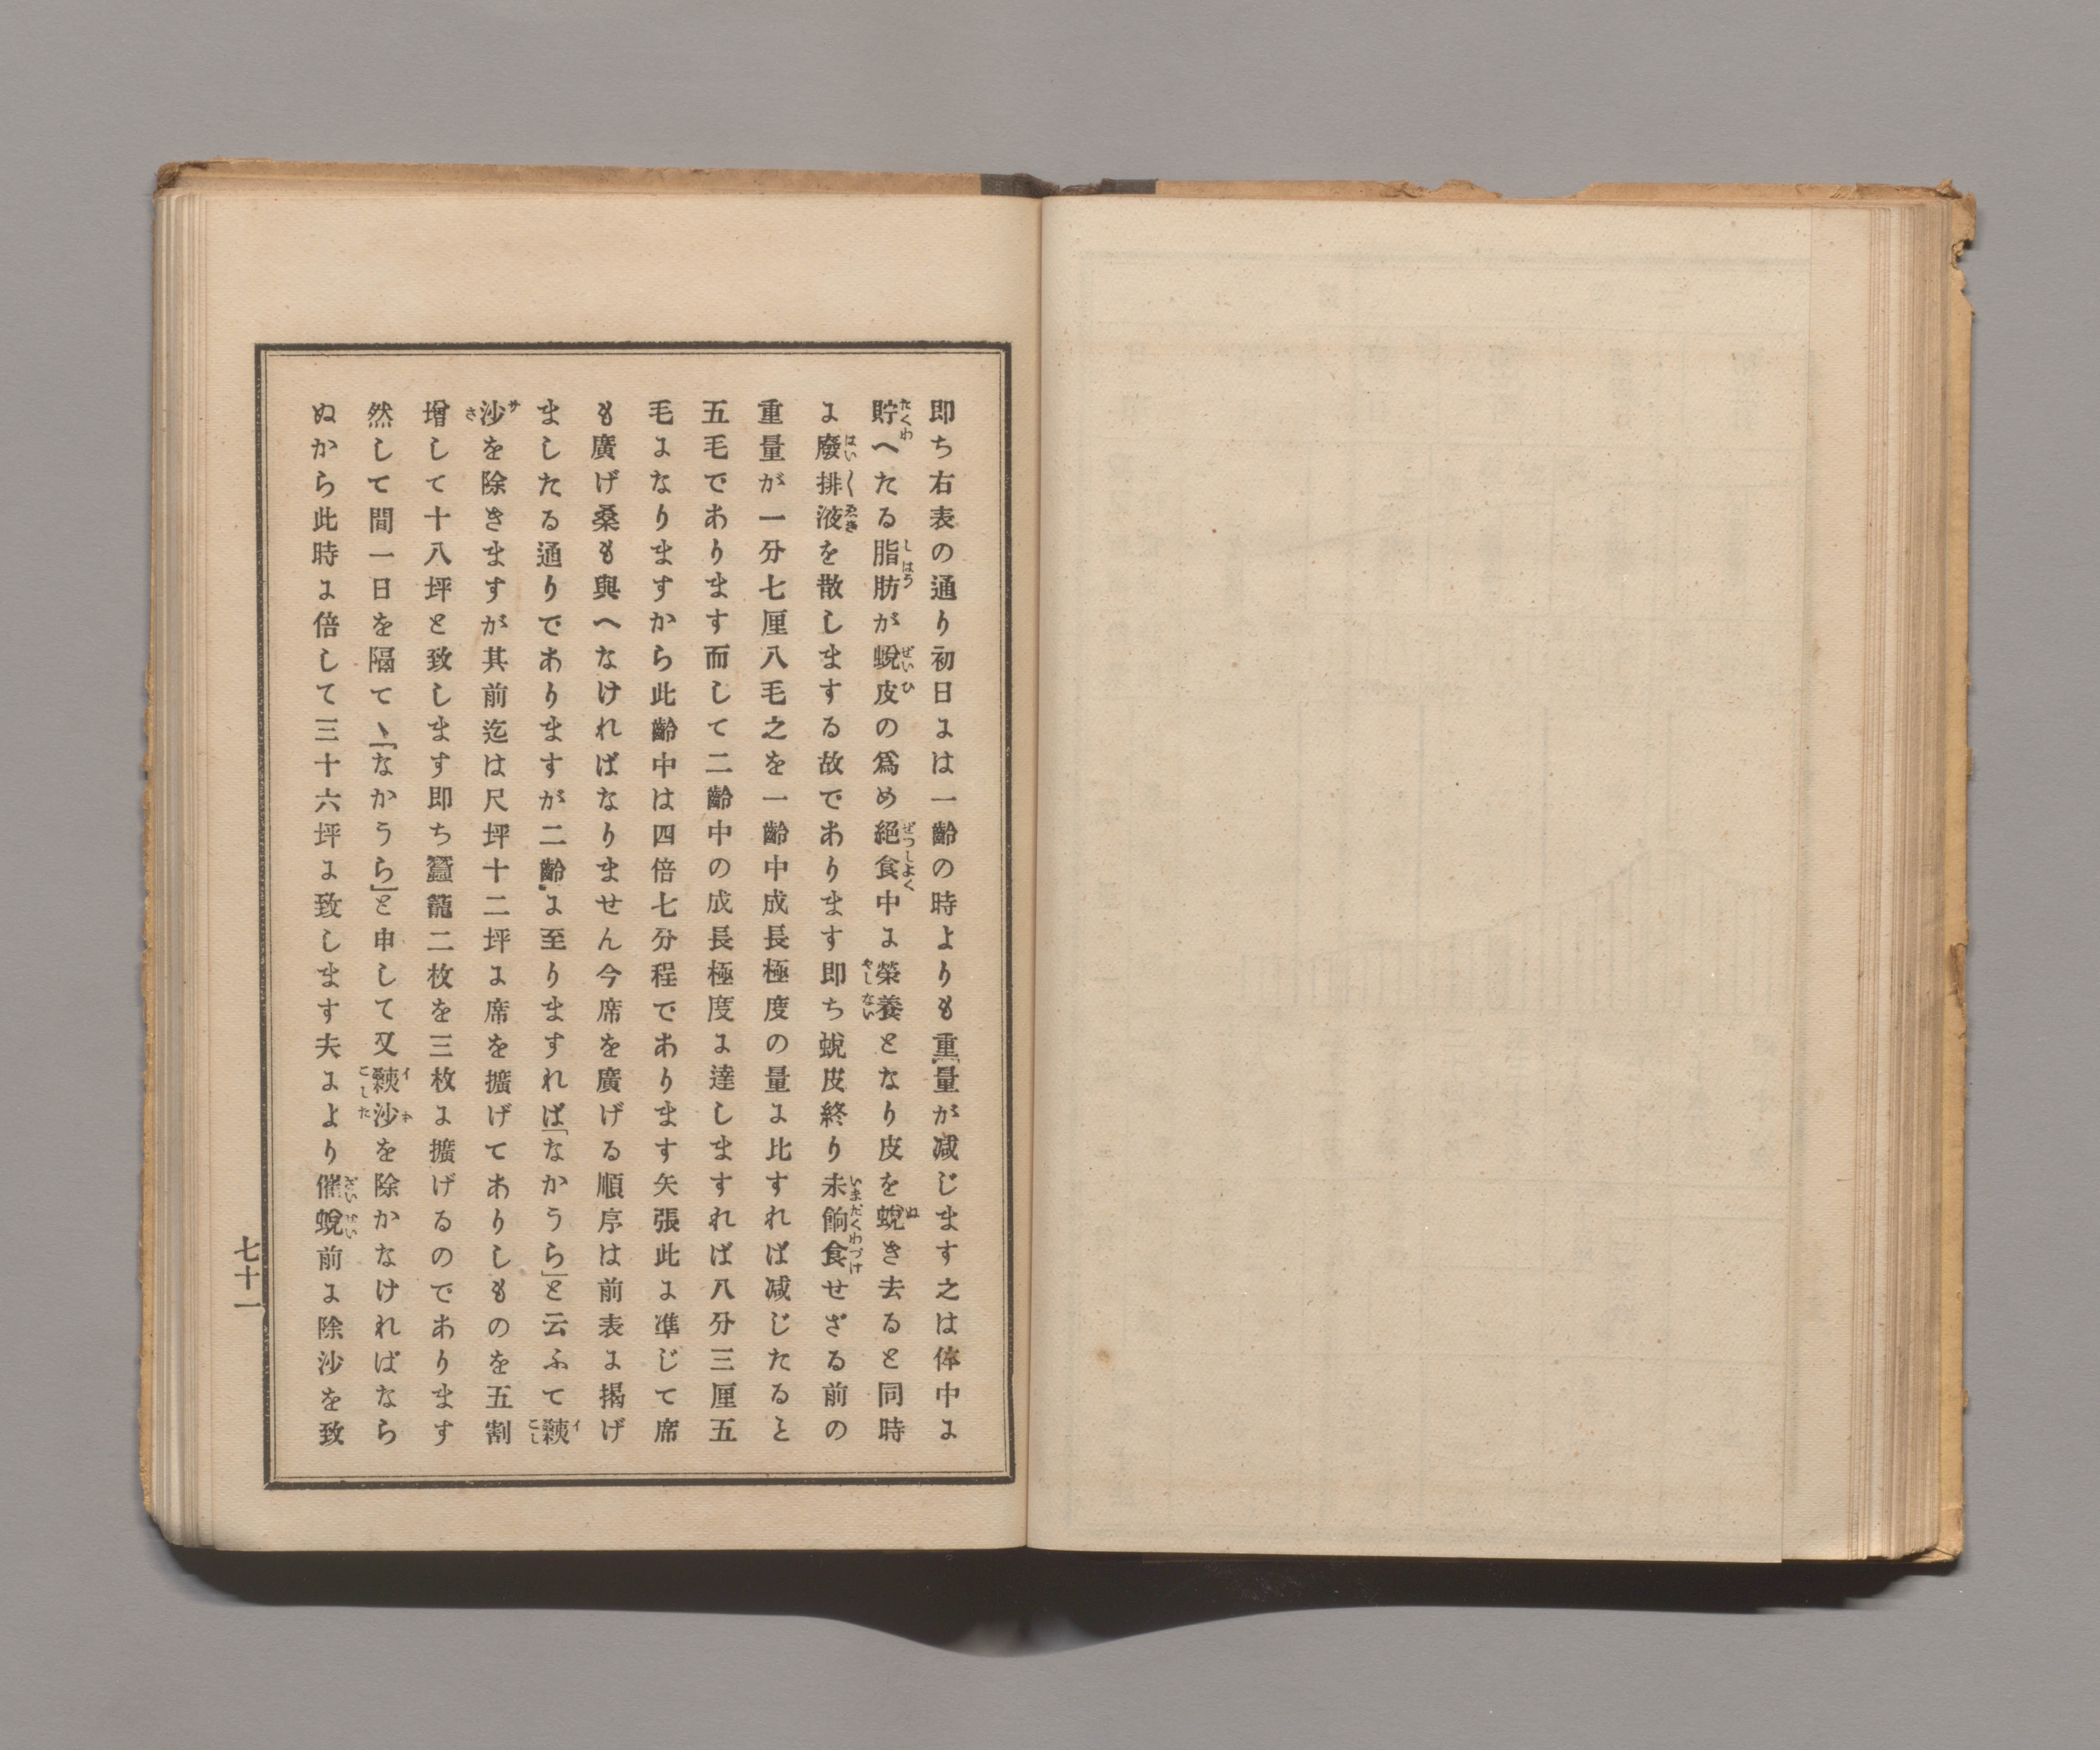 即ち右表の通り初日には一齡の時よりも重量が减じます之は体中に
貯へたる脂肪が蛻皮の爲め絕食中に榮養となり皮を蛻き去ると同時
に廢排液を散しまする故であります即ち蛻皮終り未餉食せざる前の
重量が一分七厘八毛之を一齡中成長極度の量に比すれば减じたると
五毛であります而して二齡中の成長極度に達しますれば八分三厘五
毛になりますから此齡中は四倍七分程であります矢張此に凖じて席
も廣げ桑も與へなければなりません今席を廣げる順序は前表に揭げ
ましたる通りでありますが二齡に至りますれば「なかうら」と云ふて
沙を除きますが其前迄は尺坪十二坪に席を擴げてありしものを五割
增して十八坪と致します即ち蠶籠二枚を三枚に擴げるのであります
然して間一日を隔て、「なかうら」と申して又沙を除かなければなら
ぬから此時に倍して三十六坪に致します夫により催蛻前に除沙を致
七十一